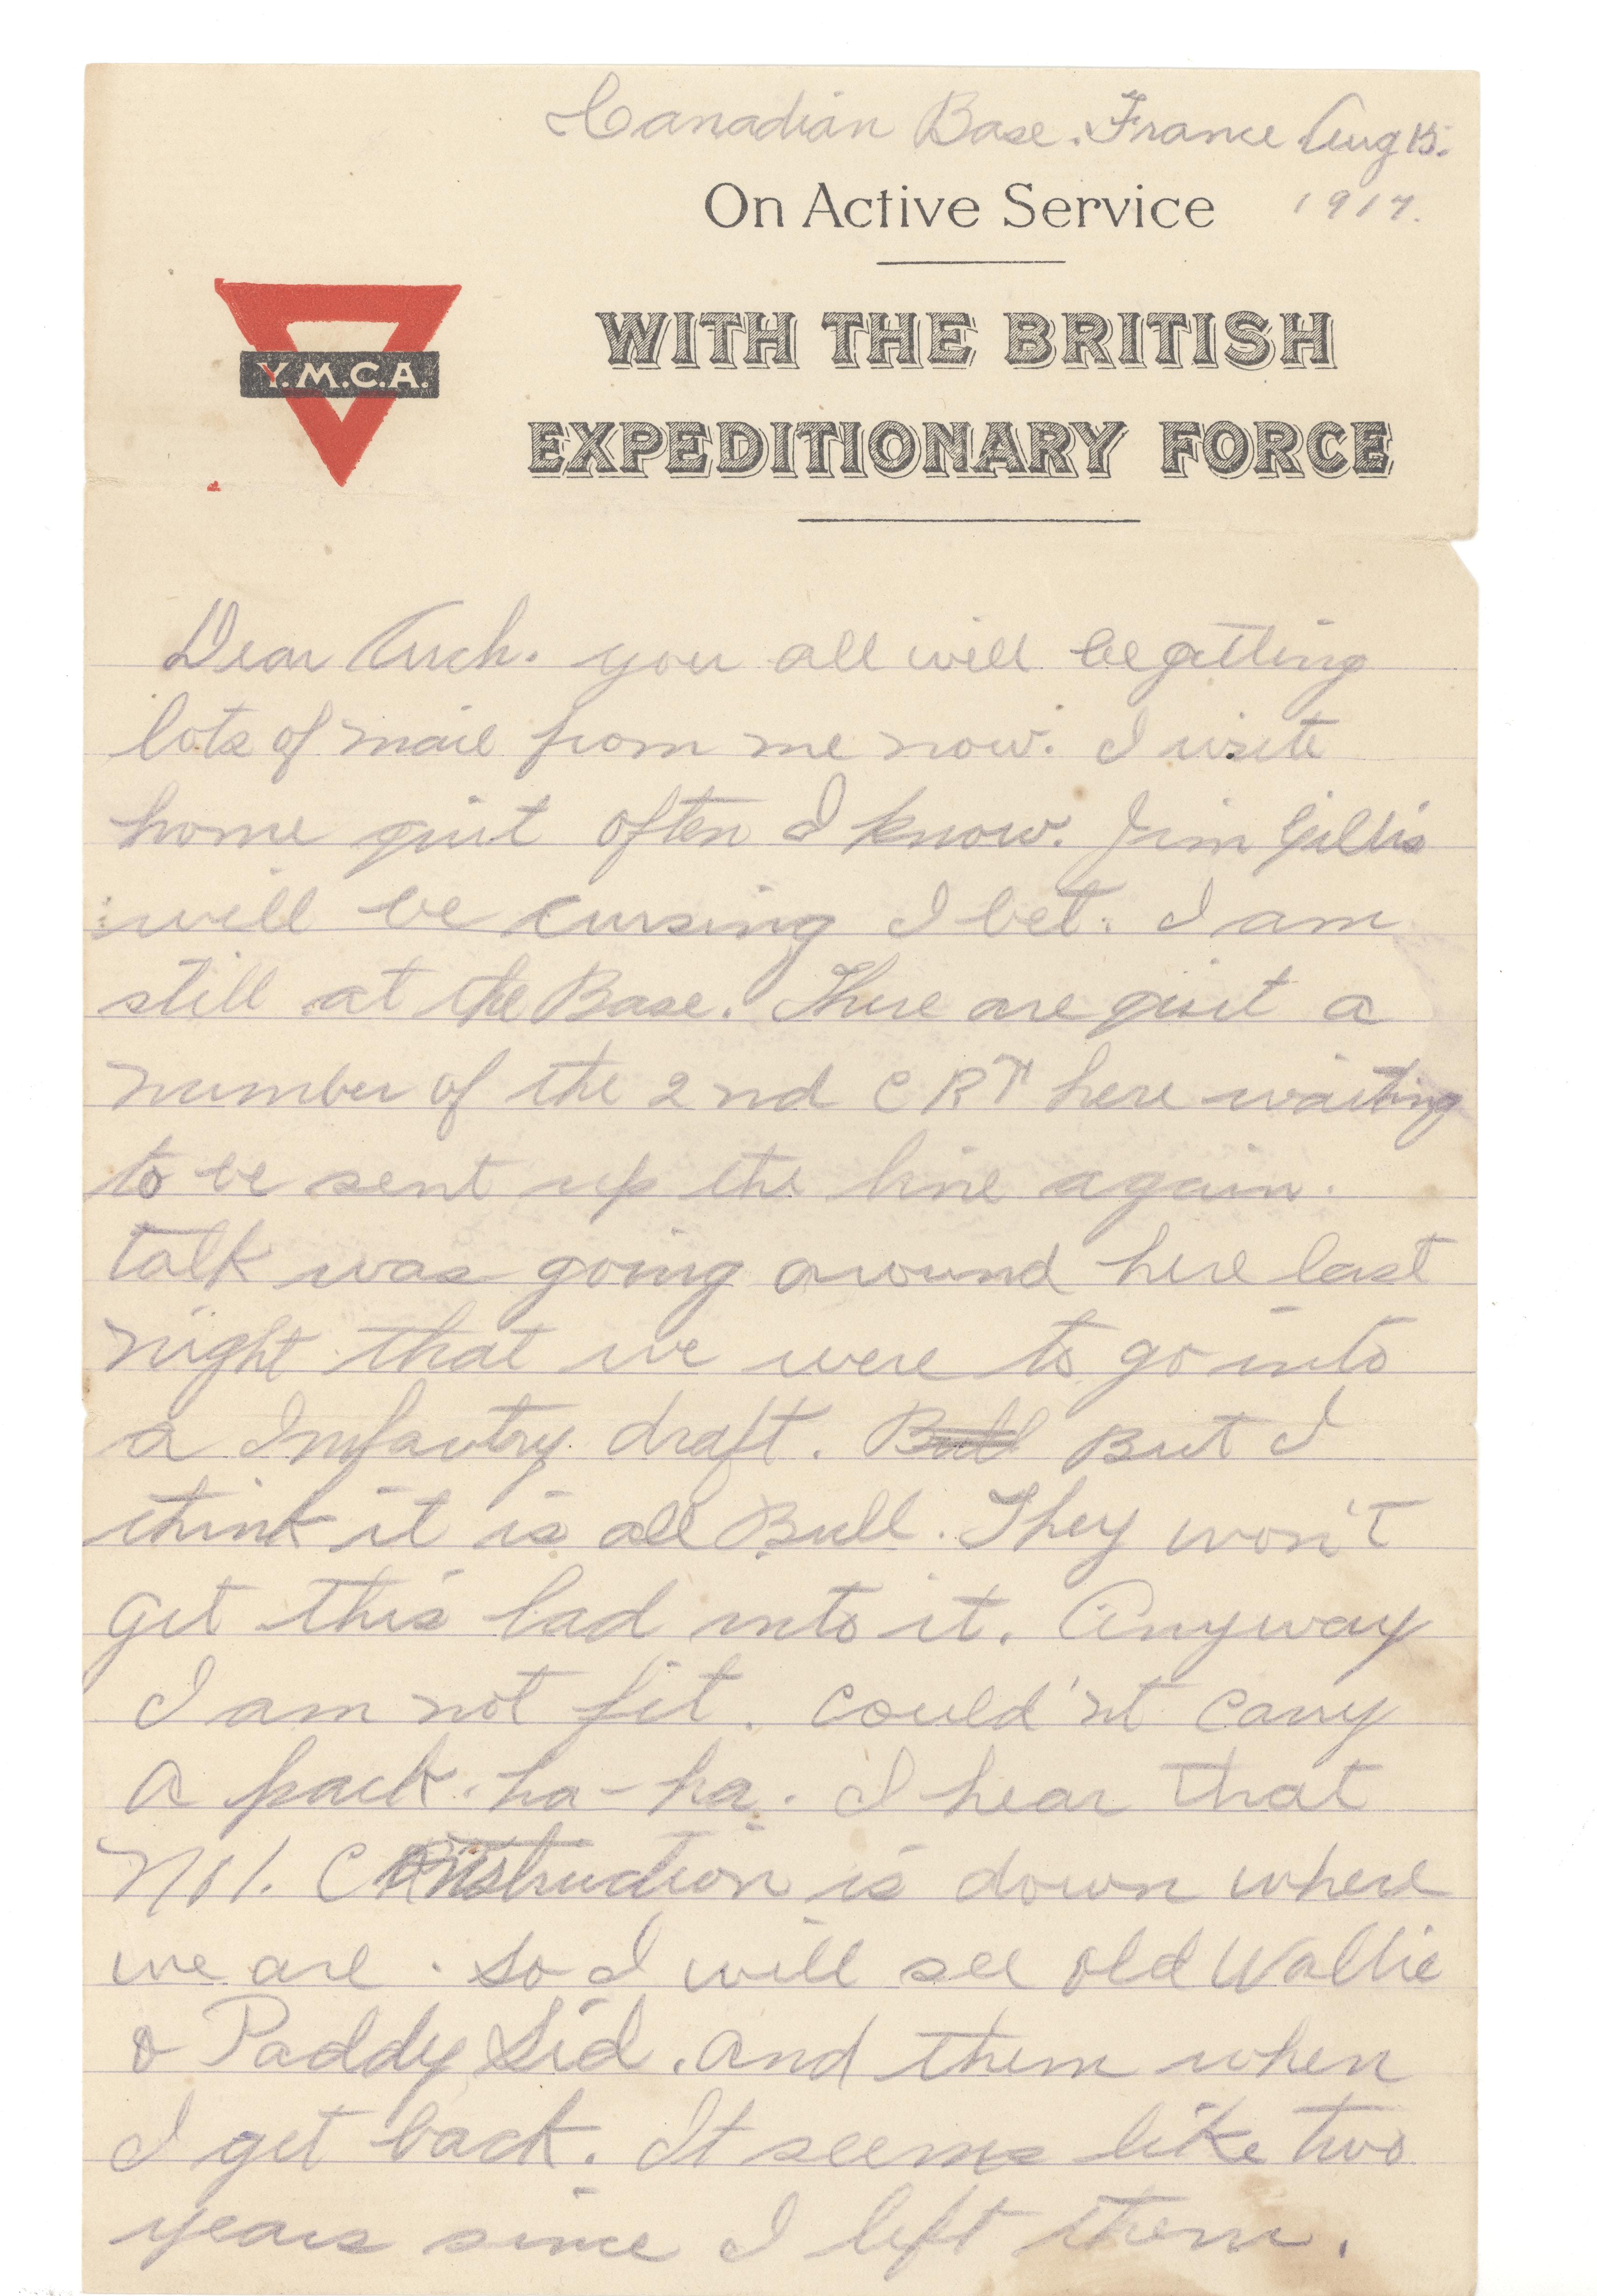 Canadian Base. France Aug 15.
On Active Service 1917.
Y.M.C.A.
WITH THE BRITISH
EXPEDITIONARY FORCE
Dear Arch. you all will be getting
lots of mail from me now. I write
home quit often I know. Jim Gillis
will be cursing I bet. I am
still at the Base. There are quit a
number of the 2nd CRT here waiting
to be sent up the line again.
talk was going around here last
night that we were to go into
a Infantry draft. But I
think it is all Bull. They won't
get this lad into it. Anyway
I am not fit. could'nt carry
a pack. ha-ha. I hear that
No 1. Construction is down where
we are. so I will see old Wallie
& Paddy Sid. and them when
I get back. It seems like two
years since I left them.